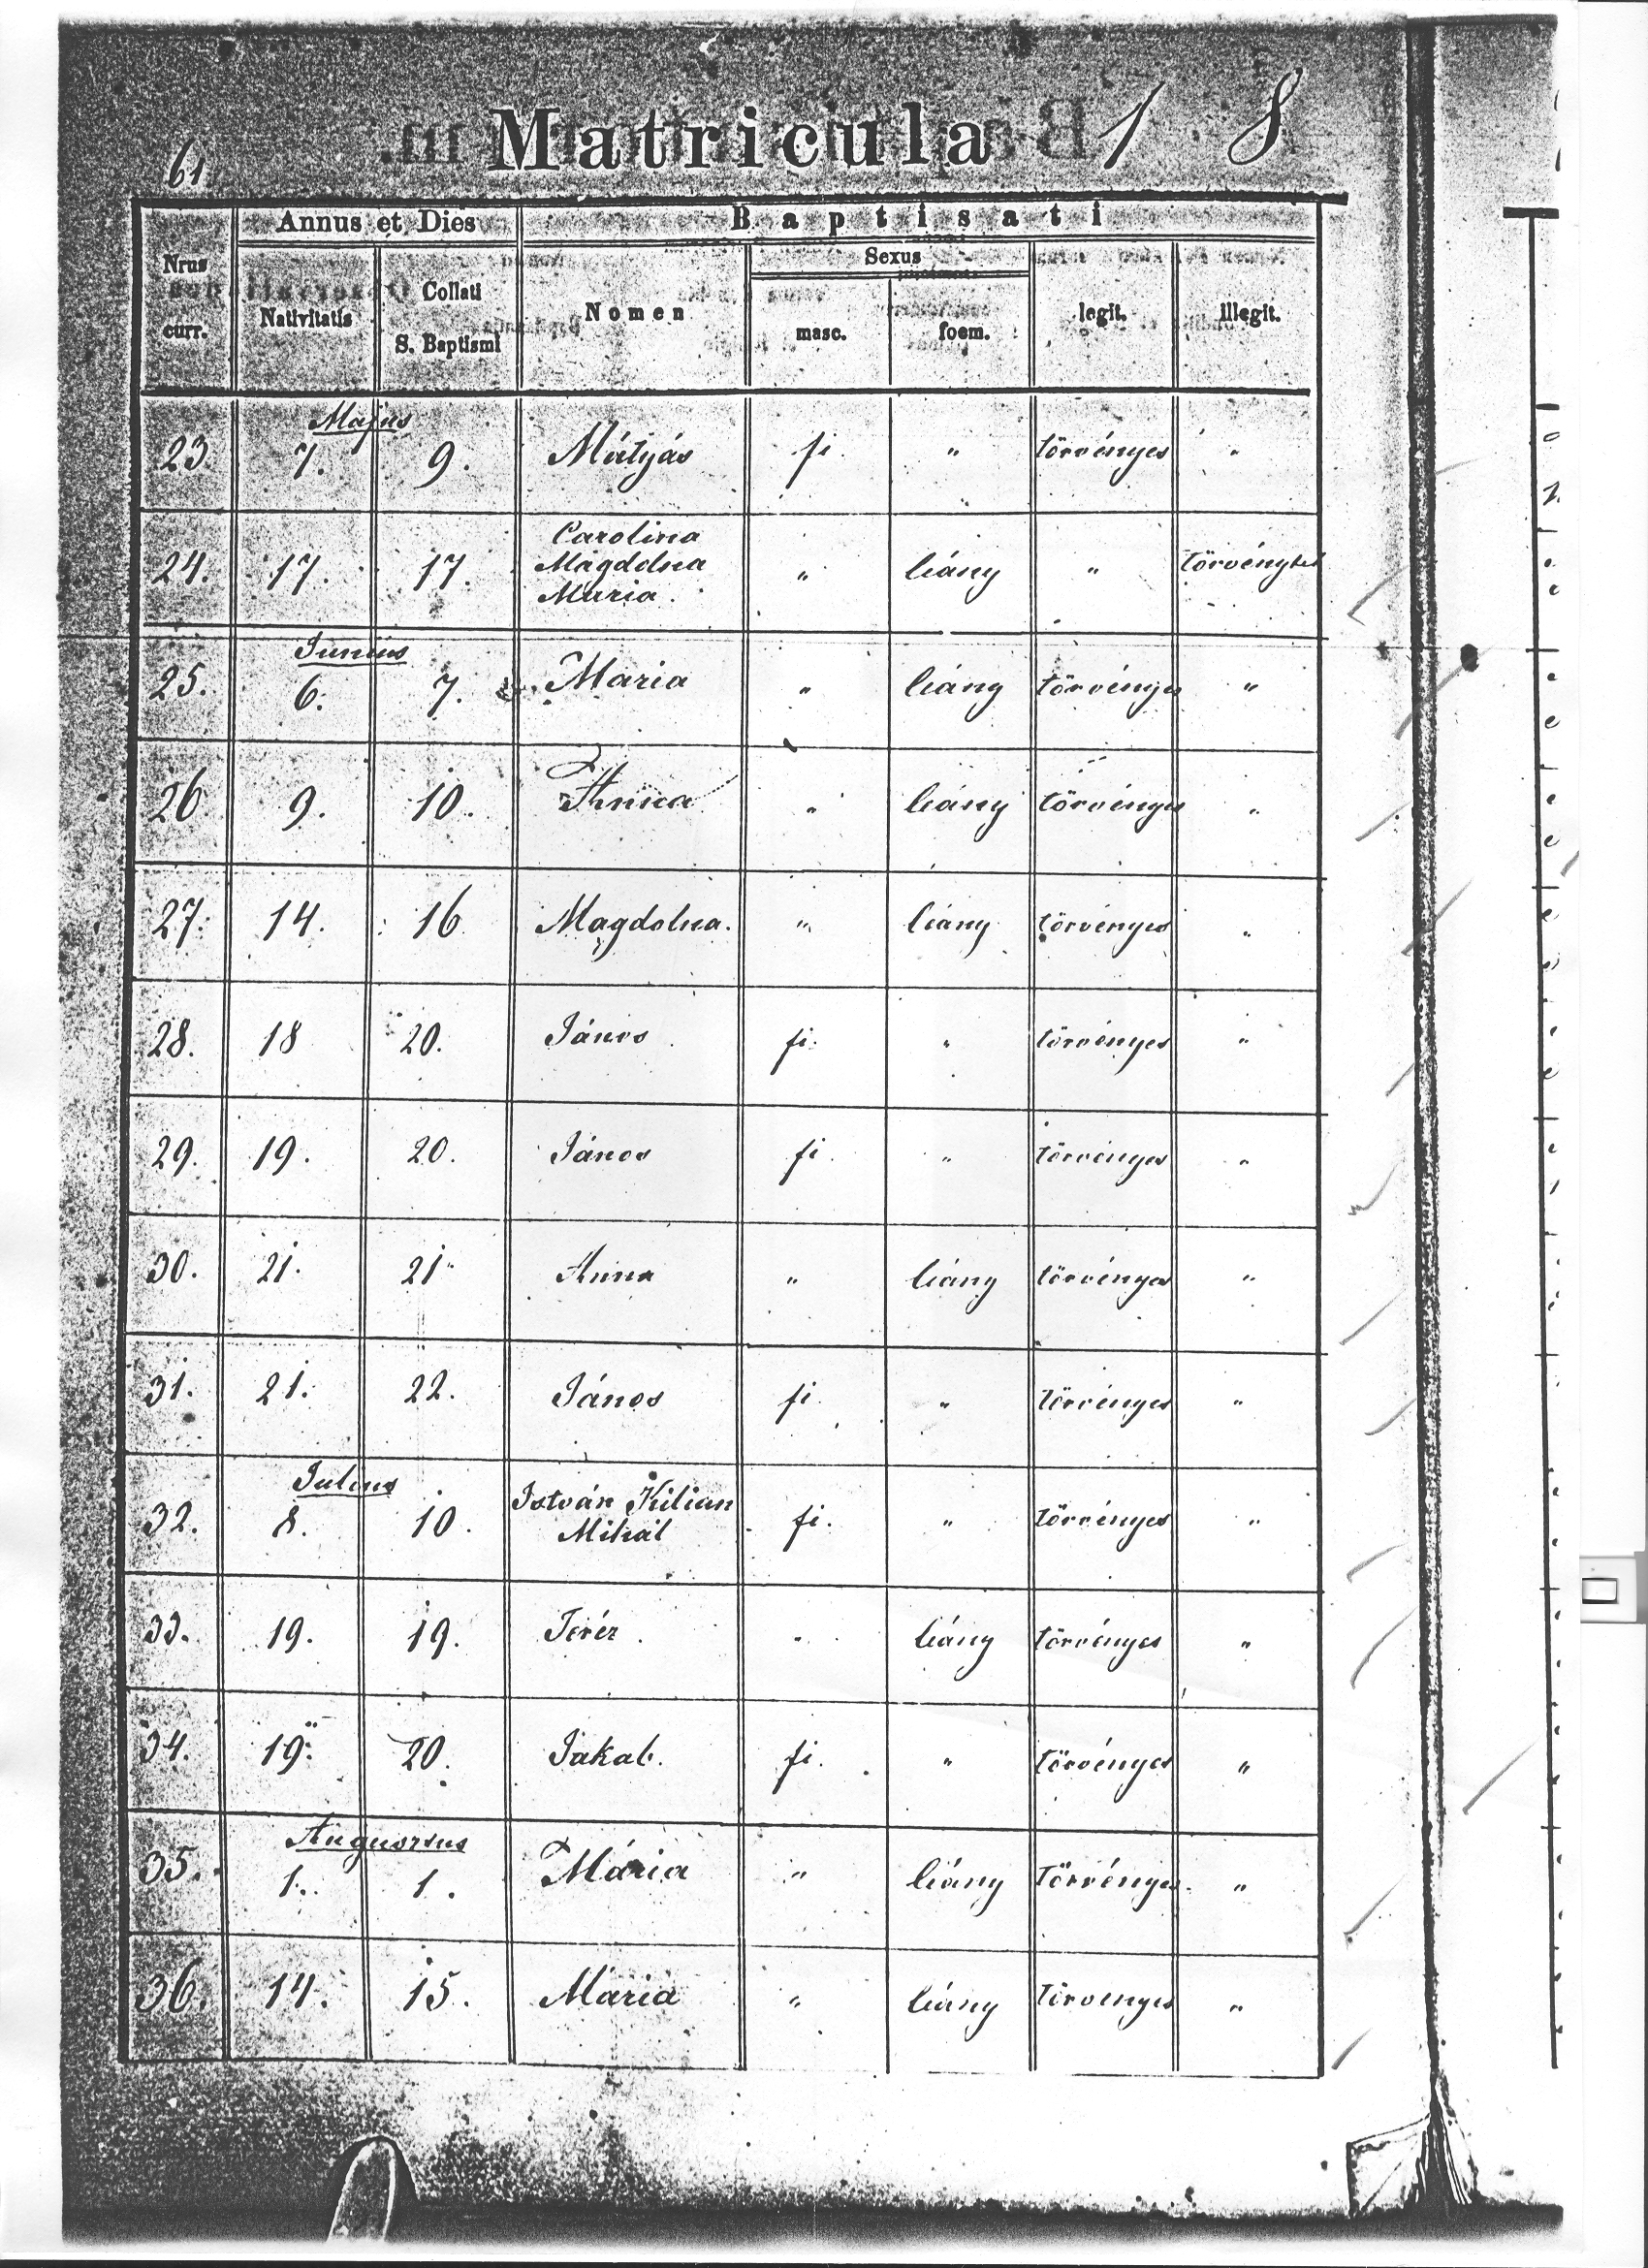 Matricula 1 8
61
Annus et Dies Baptisati
Nrus curr. Nativitatis Collati S. Baptismi Nomen Sexus masc. foem. legit. illegit.
Majus
23 7. 9. Mátyás fi. " törvényes "
Carolina
24. 17. 17. Magdolna " leány " törvénytel
Maria.
Junius
25. 6. 7. Maria " leány törvényes "
26 9. 10. Anna " leány törvényes "
27. 14. 16 Magdolna. " leány törvényes "
28. 18 20. János fi. " törvényes "
29. 19. 20. János fi. " törvényes "
30. 21. 21 Anna " leány törvényes "
31. 21. 22. János fi. " törvényes "
Julius
32. 8. 10. István Kilian fi. " törvényes "
Mihál
33. 19. 19. Teréz. " leány törvényes "
34. 19. 20. Jakab. fi. " törvényes "
Augustus
35. 1. 1. Mária " leány törvényes. "
36. 14. 15. Maria " leány törvényes "